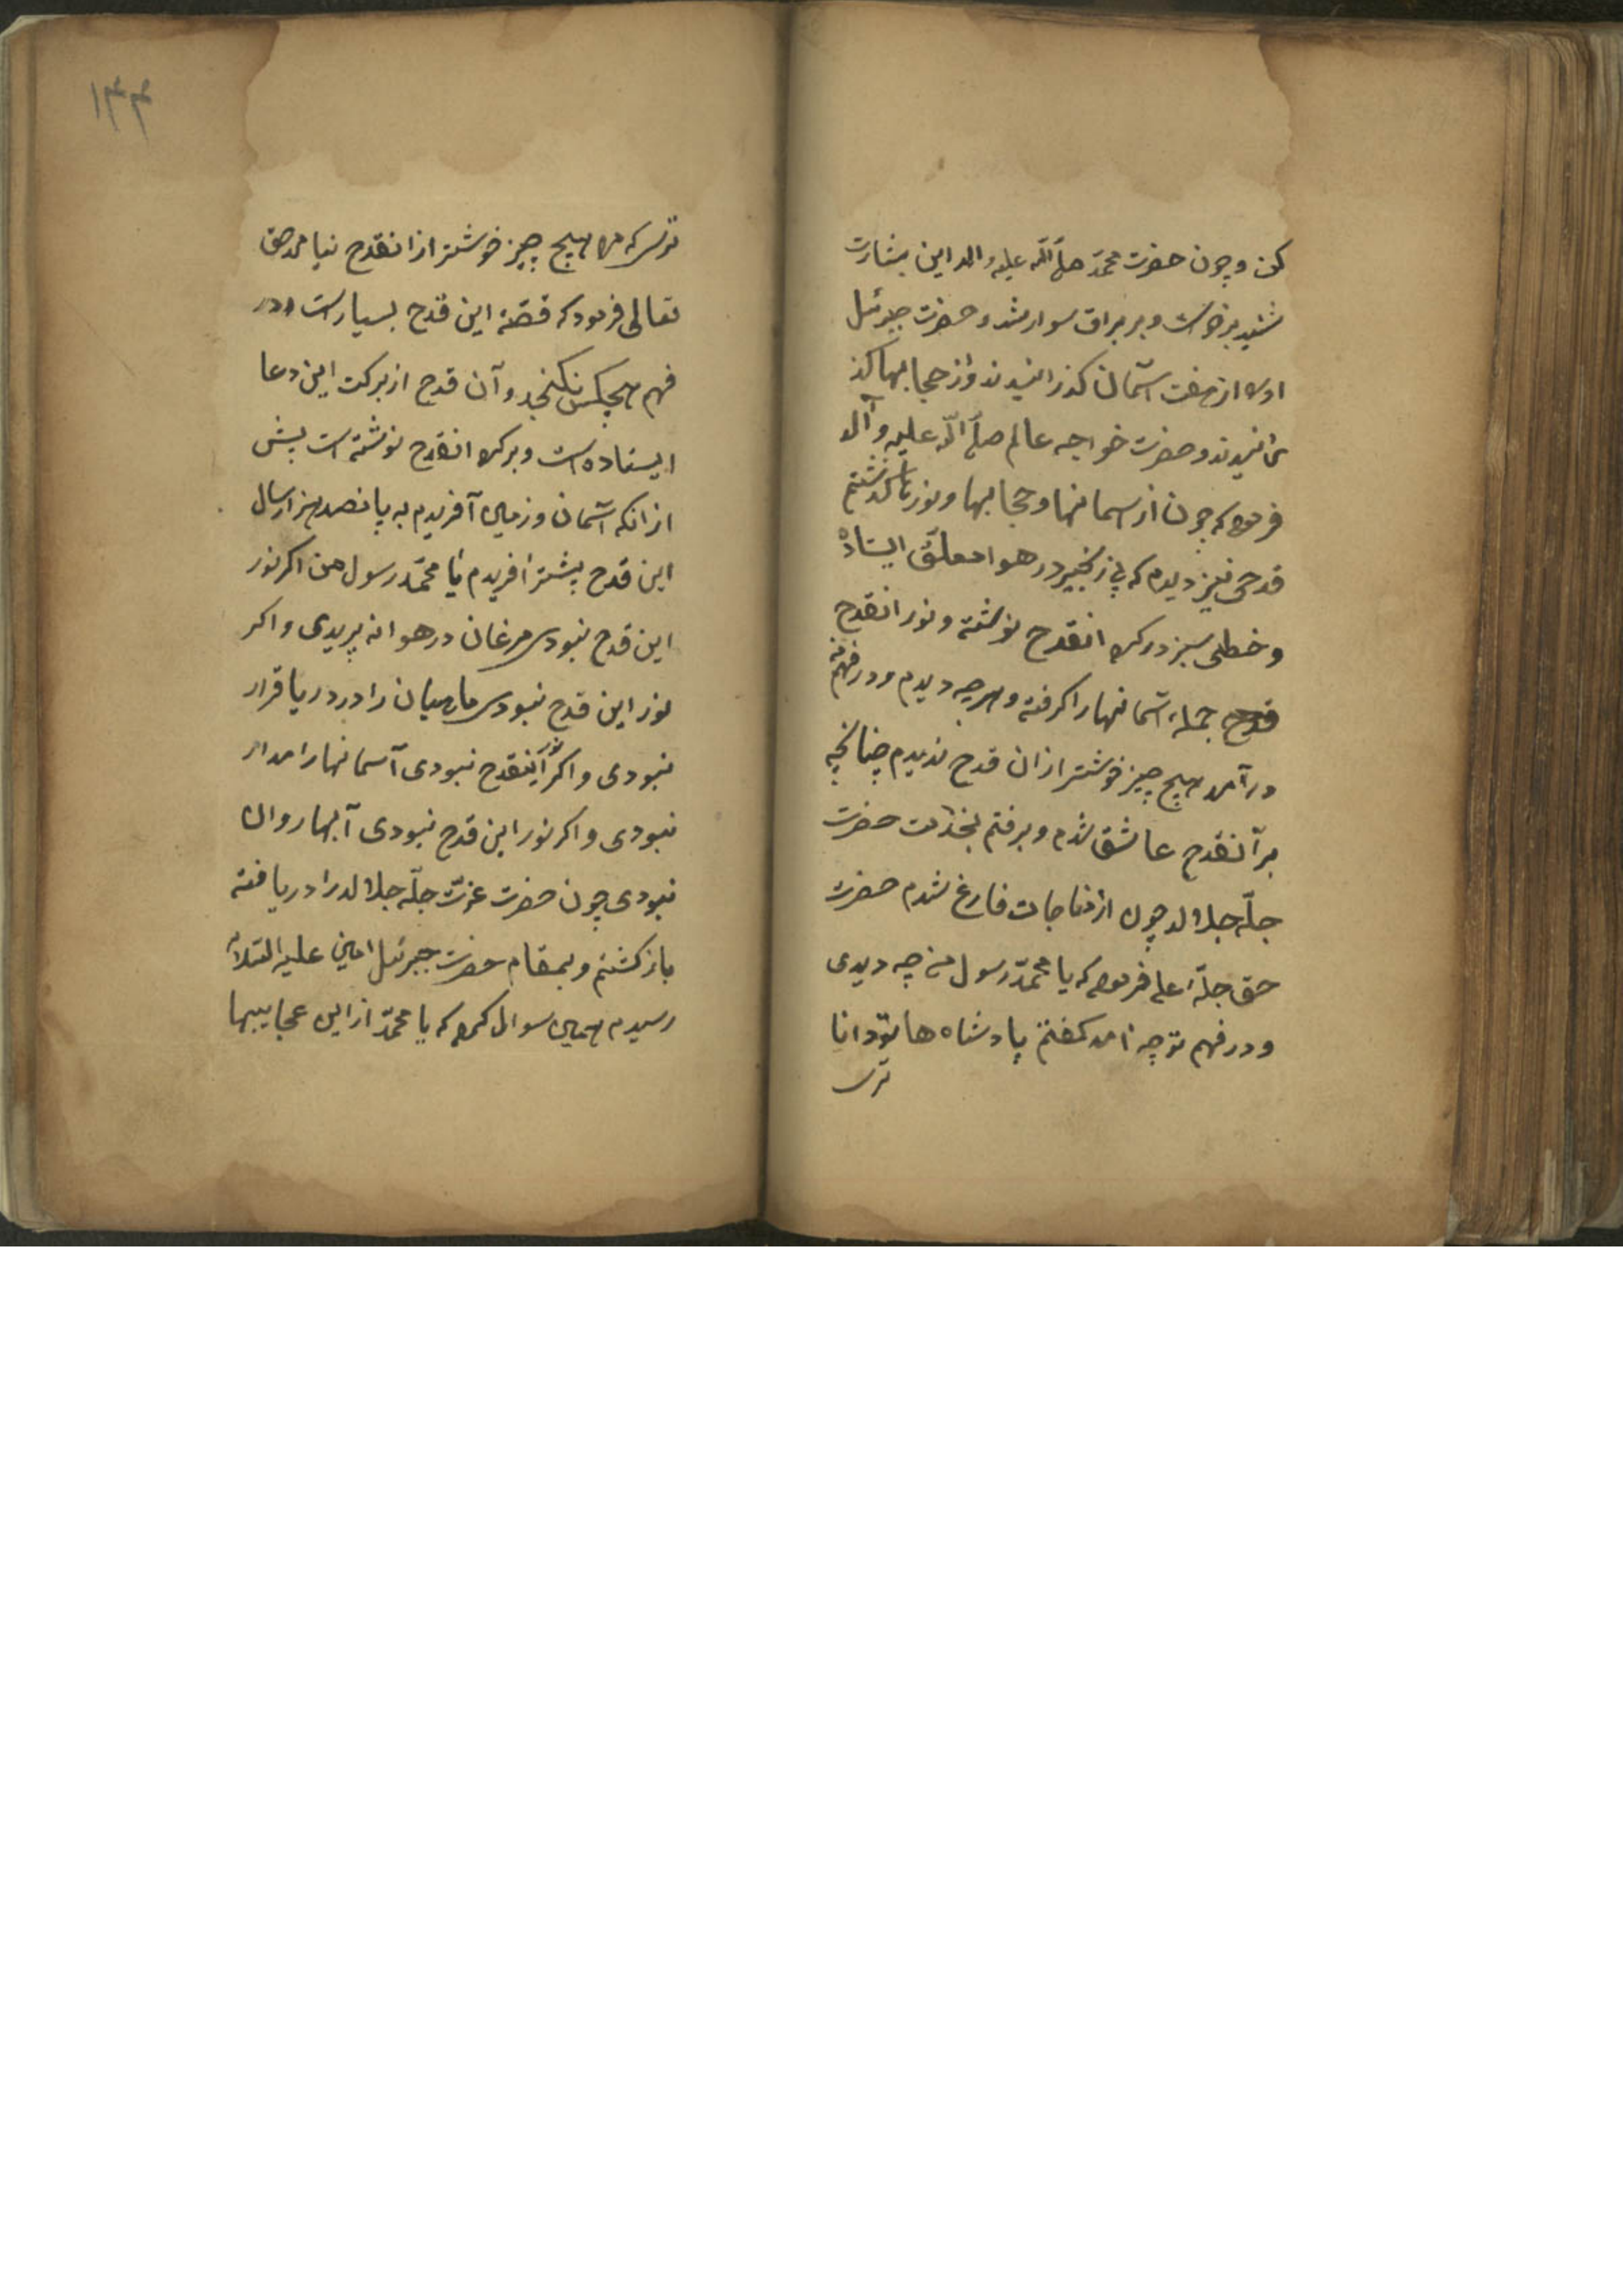 کن و چون حضرت محمّد صلّی اللّه علیه و اله این بشارت
شنید برخواست و بر براق سوار شد و حضرت جبرئیل
او را از هفت آسمان کذرانیدند و از حجابها کذ
رانیدند و حضرت خواجه عالم صلّی اللّه علیه و آله
فرموده که چون از اسمانها و حجابها و نورها کذشتم
قدحی نیز دیدم که بی زنجیر در هوا معلّق ایستاده
و خطی سبز در کرد انقدح نوشته و نور انقدح
قدح جمله آسمانها را کرفته و هرچه دیدم و در فهم
در آمد هیچ چیز خوشتر از ان قدح ندیدم چنانچه
بر آنقدح عاشق شدم و برفتم بخدمت حضرت
جلّه جلاله چون از مناجات فارغ شدم حضرت
حق جلّه اعلی فرموده که یا محمّد رسول من چه دیدی
و در فهم تو چه امد کفتم پادشاها تو دانا
تری
۱۴۴
تری که مرا هیچ چیز خوشتر از انقدح نیامد حق
تعالی فرمود که قصّهٔ این قدح بسیار است و در
فهم هیچکس نکنجد و آن قدح از برکت این دعا
ایستاده است و بر کرد انقدح نوشته است پیش
از انکه آسمان و زمین آفریدم به پانصد هزار سال
این قدح پیشتر افریدم یا محمّد رسول من اکر نور
این قدح نبودی مرغان در هوا نه پریدی و اکر
نور این قدح نبودی ماهیان را در دریا قرار
نبودی و اکر نور اینقدح نبودی آسمانها را مدار
نبودی و اکر نور این قدح نبودی آبها روان
نبودی چون حضرت عزت جلّه جلاله را دریافته
باز کشتم و بمقام حضرت جبرئیل امین علیه السّلام
رسیدم همین سوال کرد که یا محمّد از این عجایبها